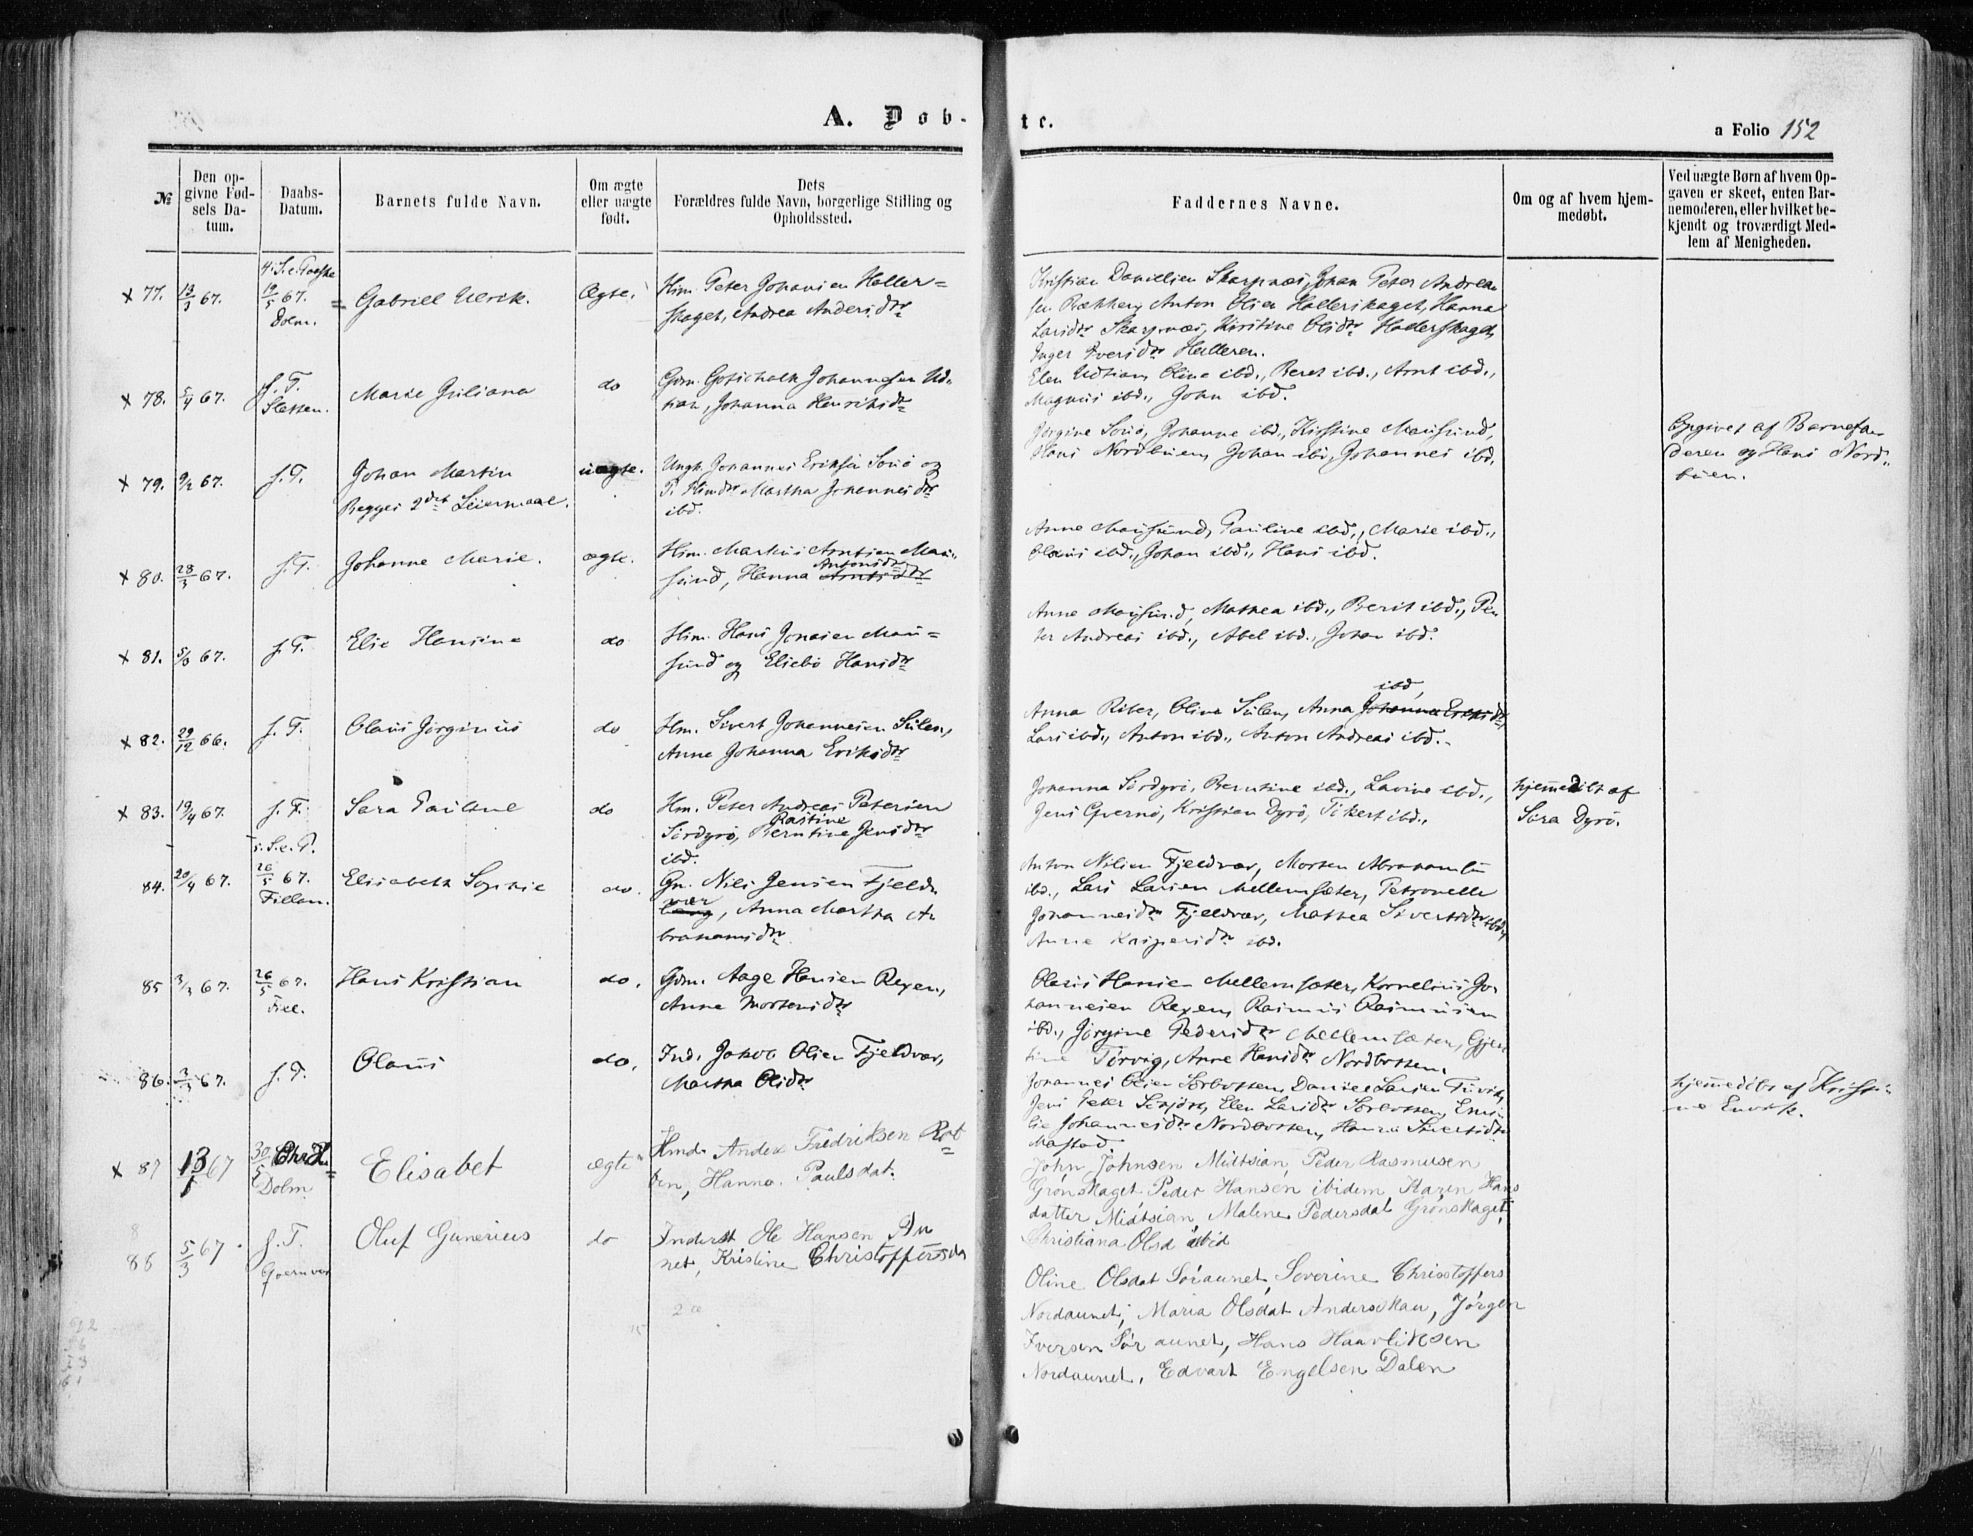 A. Døb-
te.
a Folio 152
№
Den op-
givne Fød-
sels Da-
tum.
Daabs-
Datum.
Barnets fulde Navn.
Om ægte
eller uægte
født.
Dets
Forældres fulde Navn, borgerlige Stilling og
Opholdssted.
Faddernes Navne.
Om og af hvem hjem-
medøbt.
Ved uægte Børn af hvem Op-
gaven er skeet, enten Bar-
nemoderen, eller hvilket be-
kjendt og troværdigt Med-
lem af Menigheden.
4. S. e. Paaske
x 77. 13/3 67.
19/5 67.
Dolm.
Gabriel Ulrik.
Ægte.
Hm. Peter Johansen Haller=
skaget, Andrea Andersdtr
Kristian Danielsen Skarpnæs, Johan Peter Andrea
sen Bækken, Anton Olsen Hallerskaget, Hanna
Larsdtr Skarpnæs, Kirstine Olsdtr Hallerskaget,
Inger Iversdtr Halleren.
x 78. 5/4 67.
s. T.
Sletten.
Marie Juliana
do
Gdm. Gotschalk Johannesen Ud-
tian, Johanna Henriksdtr
Elen Udtian, Oline ibd., Beret ibd., Arnt ibd.,
Magnus ibd., John ibd.
x 79. 9/2 67.
s. T.
Johan Martin
Begges 2det Leiermaal.
uægte.
Ungk. Johannes Eriksen Sørø og
P. Hmdtr Martha Johannesdtr
ibd.
Jørgine Sørø, Johanne ibd., Kirstine Mausund,
Hans Nordbuen, Johan ibd., Johannes ibd.
Opgivet af Barnefa-
deren og Hans Nord-
buen.
x 80. 28/3 67.
s. T.
Johanne Marie.
ægte.
Hm. Markus Arntsen Mau-
sund, Hanna Antonsdtr
Arntsdtr
Anne Mausund, Pauline ibd., Marie ibd.,
Olaus ibd., Johan ibd., Hans ibd.
x 81. 5/3 67.
s. T.
Elie Hansine
do
Hm. Hans Jonasen Mau=
sund og Elisebe Hansdtr
Anne Mausund, Mathea ibd., Berit ibd., Pe-
ter Andreas ibd., Abel ibd., Johan ibd.
x 82. 29/12 66.
s. T.
Olaus Jørginus
do
Hm. Sivert Johannesen Sulen,
Anne Johanna Eriksdtr
ibd,
Anna Riber, Oline Sulen, Anna Johanna Eriksdtr,
Lars ibd., Anton ibd., Anton Andreas ibd.
x 83. 19/4 67.
s. T.
Sara Pauline
do
Hm. Peter Andreas Petersen
Pastine
Sørdyrø, Berntine Jensdtr
ibd.
Johanna Sørdyrø, Berntine ibd., Lavine ibd.,
Jens Gjernø, Kristian Dyrø, Sikert ibd.,
hjemmedøbt af
Sara Dyrø.
5. S. e. P.
84. 20/4 67.
26/5 67.
Fillan.
Elisabeth Sophie
do.
Gm. Nils Jensen Fjeld-
vær
, Anna Martha A-
brahamsdtr.
Anton Nilsen Fjeldvær, Morten Abrahamsen
ibd., Lars Larsen Mellemsæter, Petronelle
Johannesdtr Fjeldvær, Mathea Sivertsdtr ibd.,
Anne Kaspersdtr ibd.
85 3/3 67.
26/5 67.
Fill.
Hans Kristian
do.
Gdm. Aage Hansen Rexen,
Anne Mortensdtr
Olaus Hansen Mellemsæter, Kornelius Jo-
hannesen Rexen, Rasmus Rasmussen
ibd., Jørgine Pedersdtr Mellemsæter, Gjer-
tine Tørvig, Anne Hansdtr Nordbotten.
86. 3/3 67.
s. T.
Olaus
do.
Ind. Jakob Olsen Fjeldvær,
Martha Olsdtr
Johannes Olsen Sørbotten, Daniel Larsen Turvik,
Jens Peter Sørjør, Elen Larsdtr Sørbotten, Emi-
lie Johannesdtr Nordbotten, Hanna Sivertsdtr
Mastad.
hjemmedøbt af Kristi-
ne Envik.
x 87 13/1 67
30/5 Chr. H.=
Dolm
Elisabet
ægte
Hmd. Anders Fredriksen Bot=
ten, Hanna Paulsdat.
John Johnsen Midtsian, Peder Rasmusen
Grønskaget Peder Hansen ibidem, Karen Hans
datter Midtsian, Malene Pedersdat Grønskaget,
Christiana Olsd ibid
8
86 5/3 67.
s. T.
Oluf Gunerius
do
Inderst Ole Hansen Au
net, Kristine Christoffersda
Oline Olsdat Søraunet, Severine Christoffers
Nordaunet, Maria Olsdat Anderskau, Jørgen
Iversen Søraunet, Hans Haarliksen
Nordaunet, Edvart Engelsen Dalen